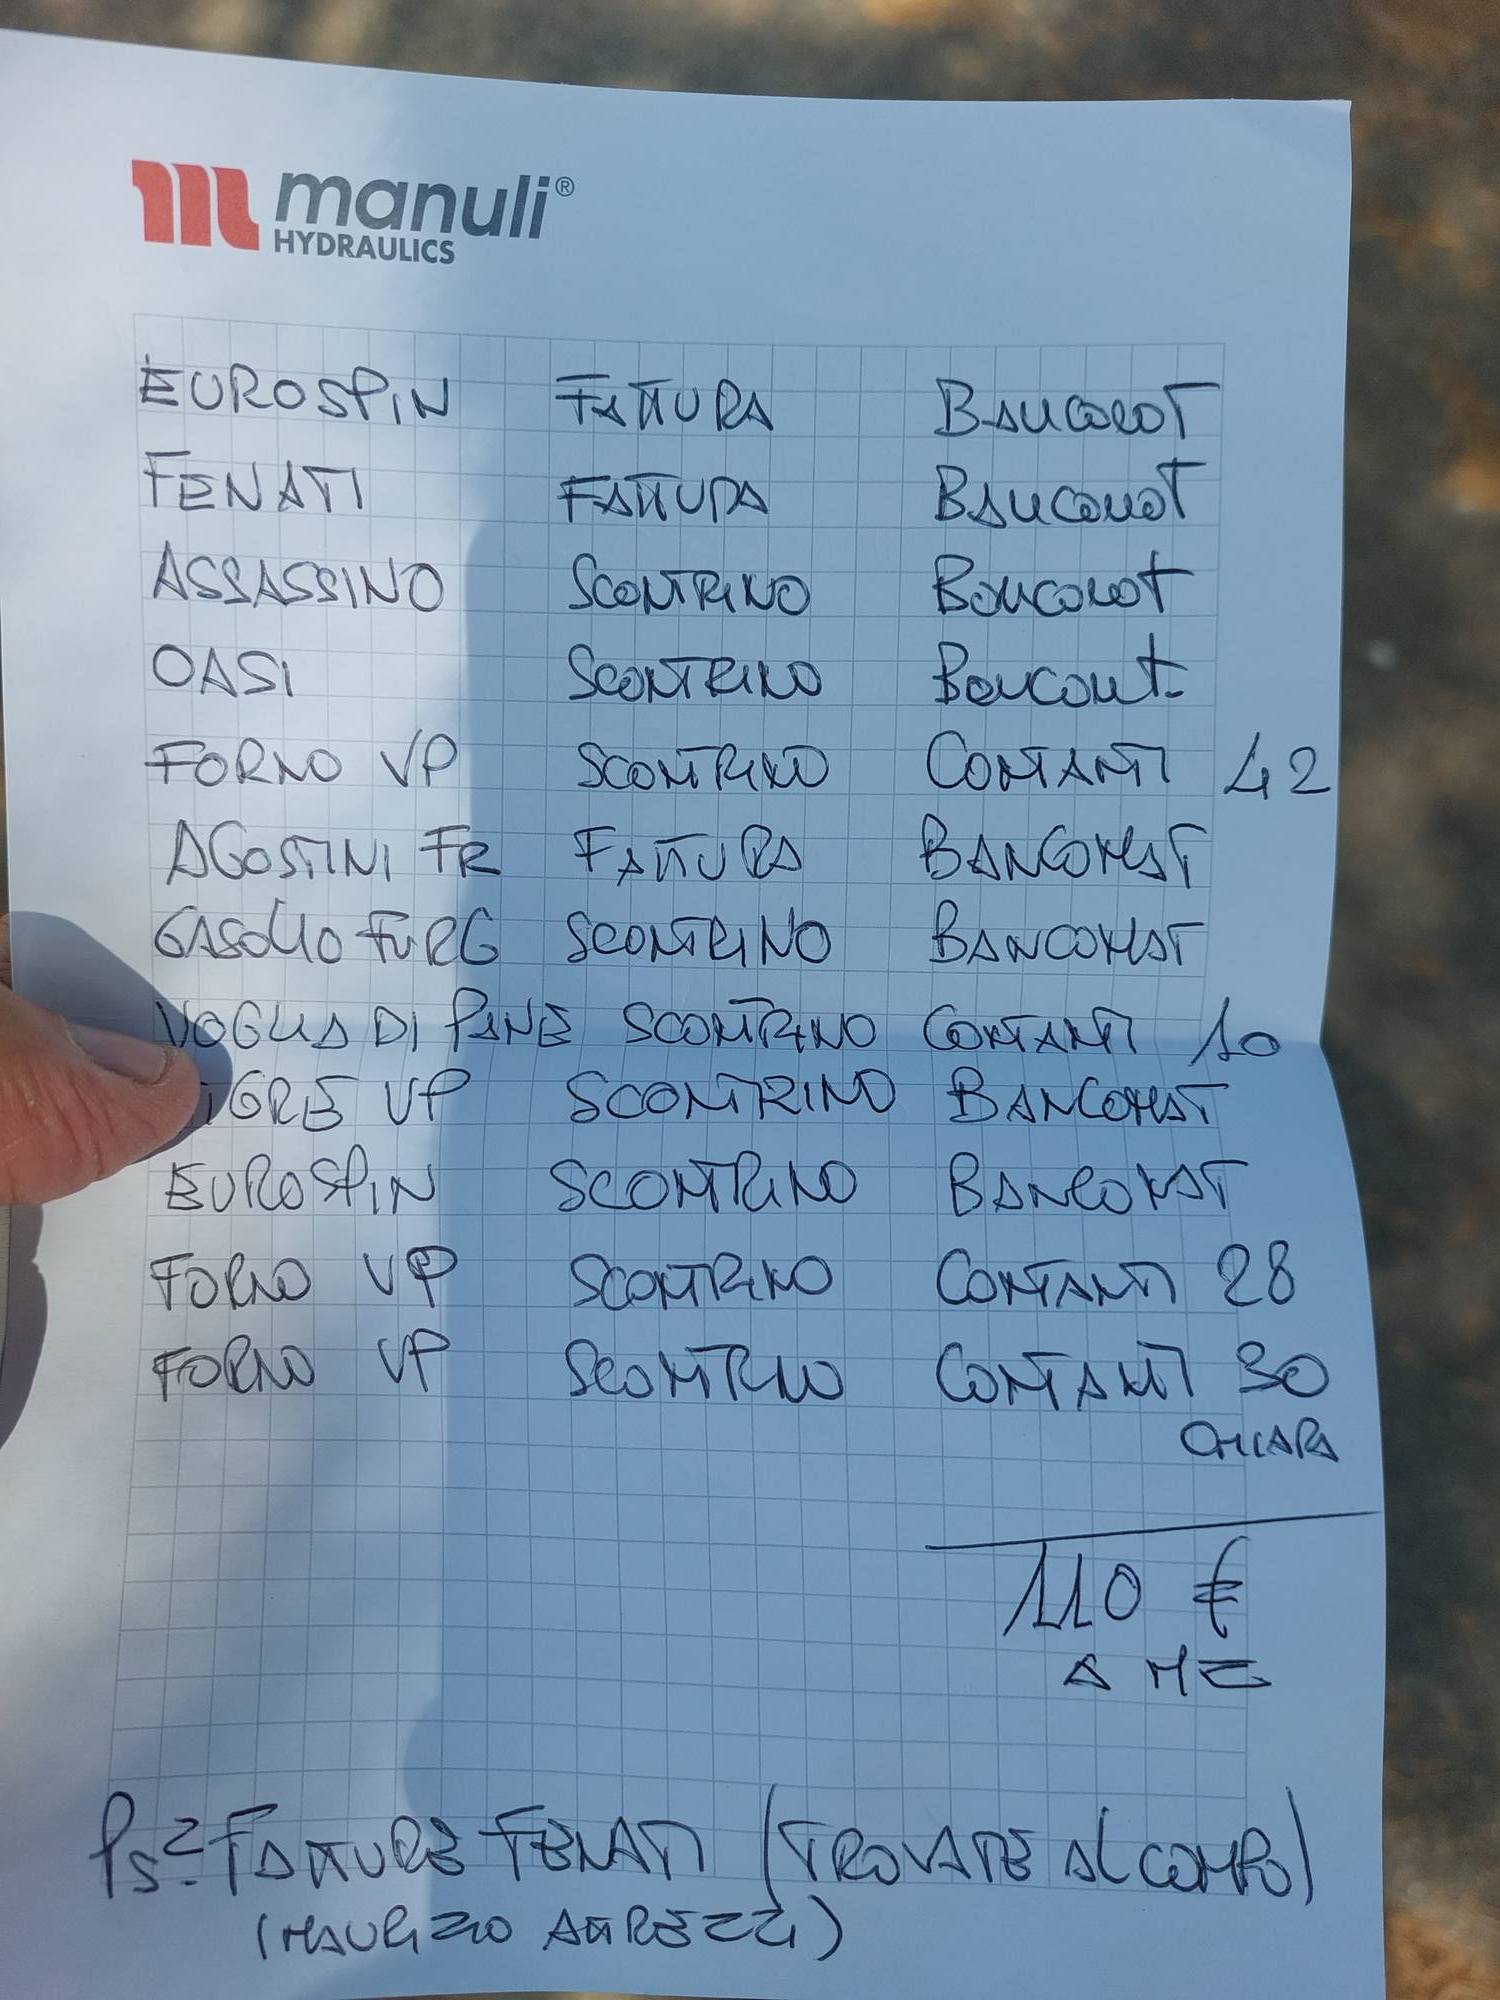 manuli®
HYDRAULICS
EUROSPIN FATTURA BANCOMAT
FENATI FATTURA BANCOMAT
ASSASSINO SCONTRINO Bancomat
OASI SCONTRINO Bancomat
FORNO VP SCONTRINO CONTANTI 42
AGOSTINI FR FATTURA BANCOMAT
GASOLIO FURG SCONTRINO BANCOMAT
VOGLIA DI PANE SCONTRINO CONTANTI 10
IGRE VP SCONTRINO BANCOMAT
EUROSPIN SCONTRINO BANCOMAT
FORNO VP SCONTRINO CONTANTI 28
FORNO VP SCONTRINO CONTANTI 30
CHIARA
110 €
A ME
Ps 2 FATTURE FENATI (TROVATE AL CAMPO)
(MAURIZIO ATTREZZI)